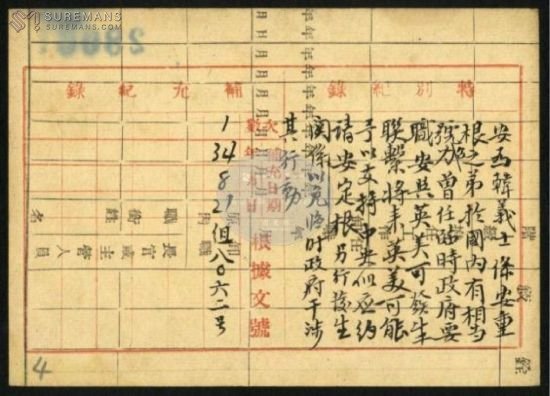 SUREMANS
SUREMANS.COM
特別紀錄
安韓義士係安重
根之弟於國內有相当
號召力曾任臨時政府要
職安與英美可發生
聯繫將來英美可能
予以支持中央似應約
請安定根另行發生
關係以免臨时政府干涉
其行動
補充紀錄
次數
補充日期
年月日
根據文號
1
34
8
21
八〇六二号
長官或主管人員
職銜
姓名
4